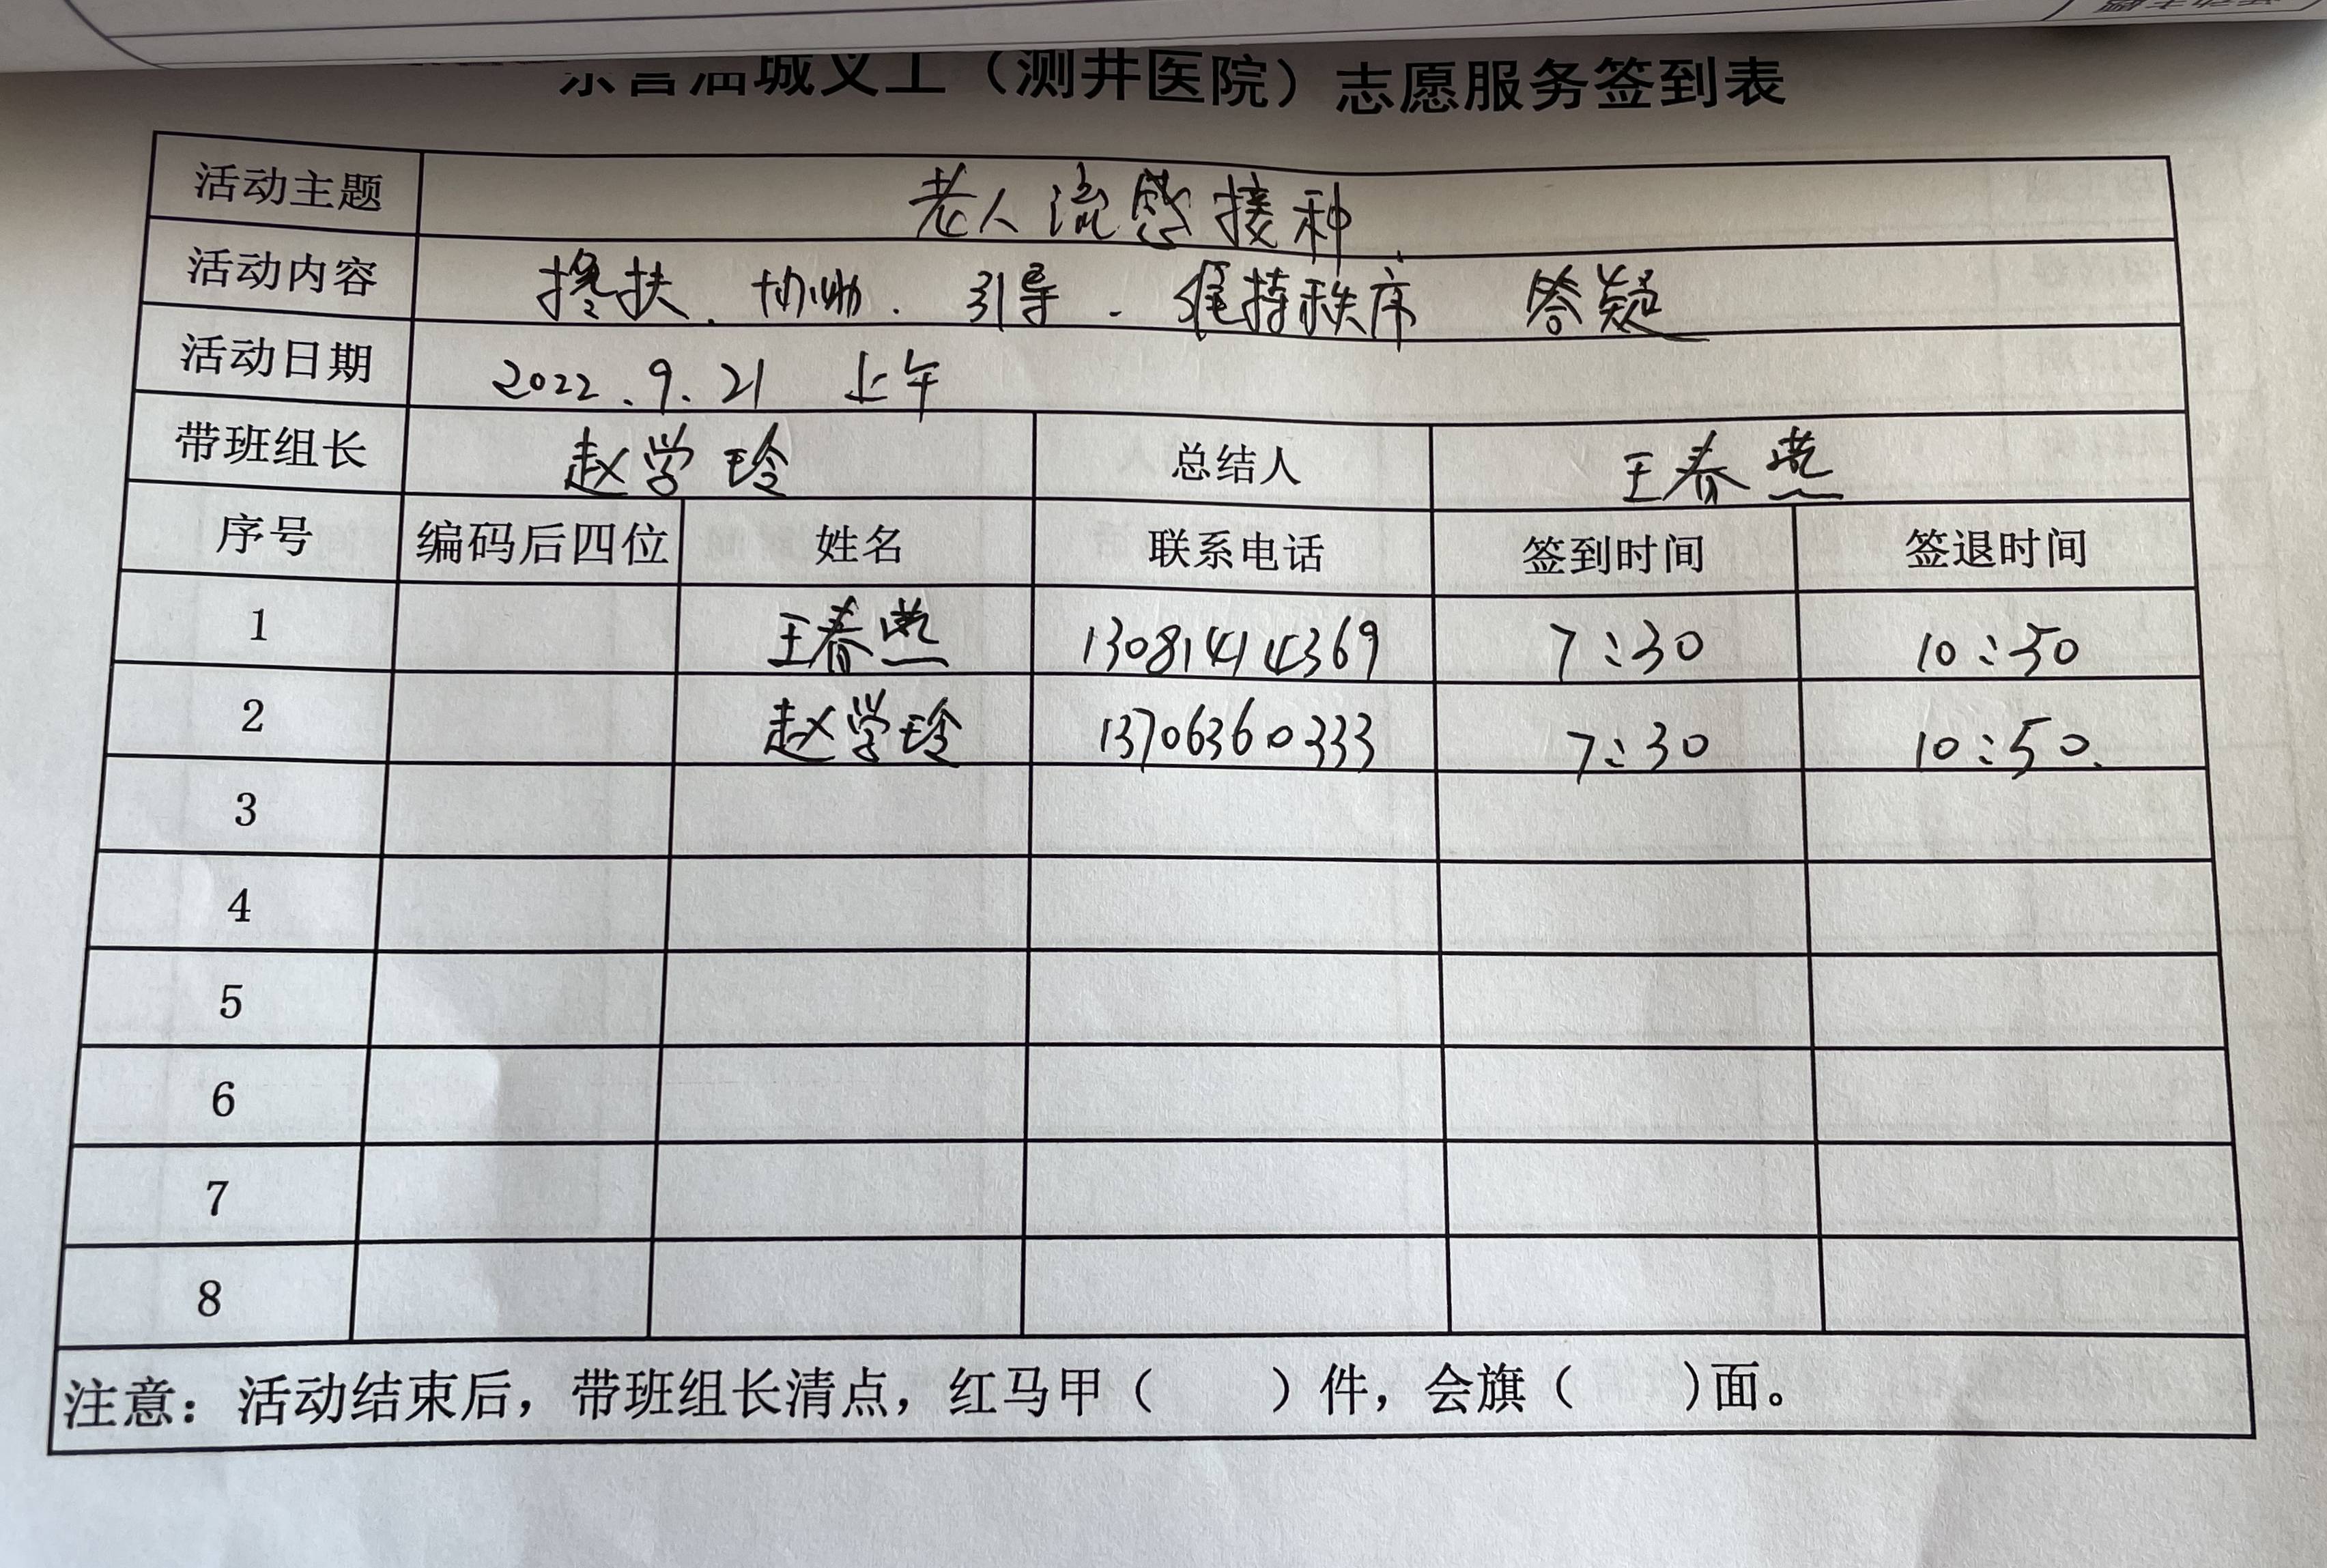 东营油城义工（测井医院）志愿服务签到表
活动主题 老人流感接种
活动内容 搀扶、协助、引导、维持秩序 答疑
活动日期 2022.9.21 上午
带班组长 赵学玲 总结人 王春燕
序号 编码后四位 姓名 联系电话 签到时间 签退时间
1 王春燕 13081414369 7:30 10:50
2 赵学玲 13706360333 7:30 10:50.
3
4
5
6
7
8
注意：活动结束后，带班组长清点，红马甲（ ）件，会旗（ ）面。